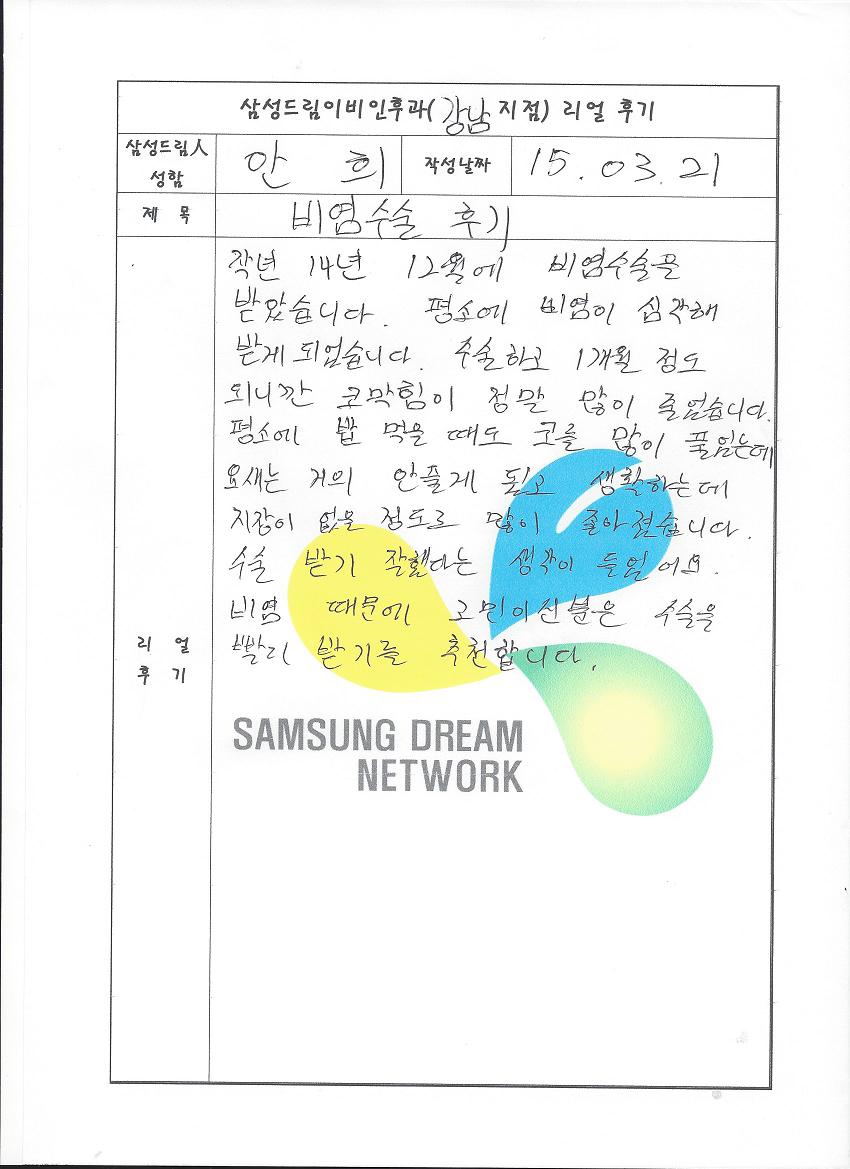 삼성드림이비인후과(강남지점) 리얼 후기
삼성드림人 성함
안 희
작성날짜
15.03.21
제 목
비염수술 후기
작년 14년 12월에 비염수술을
받았습니다. 평소에 비염이 심각해
받게 되었습니다. 수술하고 1개월 정도
되니깐 코막힘이 정말 많이 줄었습니다.
평소에 밥 먹을 때도 코를 많이 풀었는데
요새는 거의 안풀게 됬고 생활하는데
지장이 없을 정도로 많이 좋아졌습니다.
수술 받기 잘했다는 생각이 들었어요.
비염 때문에 고민이신분은 수술을
빨리 받기를 추천합니다.
리 얼
후 기
SAMSUNG DREAM
NETWORK